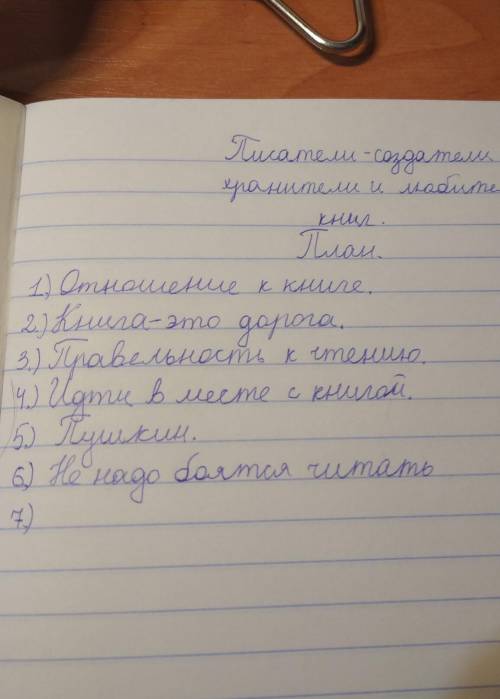 Писатели-создатели
хранители и любите
книг.
План.
1.) Отношение к книге.
2.) Книга-это дорога.
3.) Правельность к чтению.
4.) Идти в месте с книгой.
5.) Пушкин.
6.) Не надо боятся читать
7.)